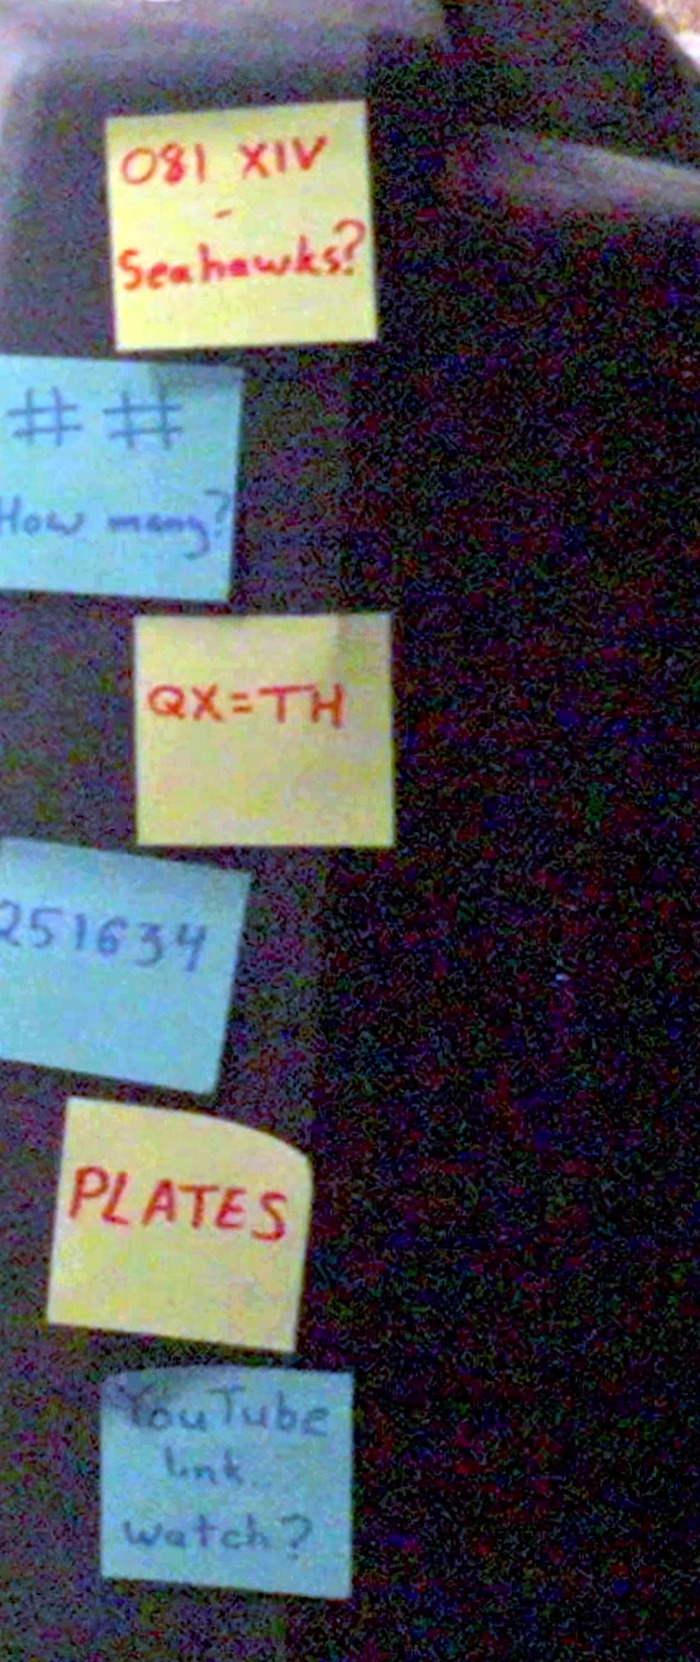 081 XIV
-
Seahawks?
# #
How many?
QX=TH
251634
PLATES
YouTube
link..
watch?